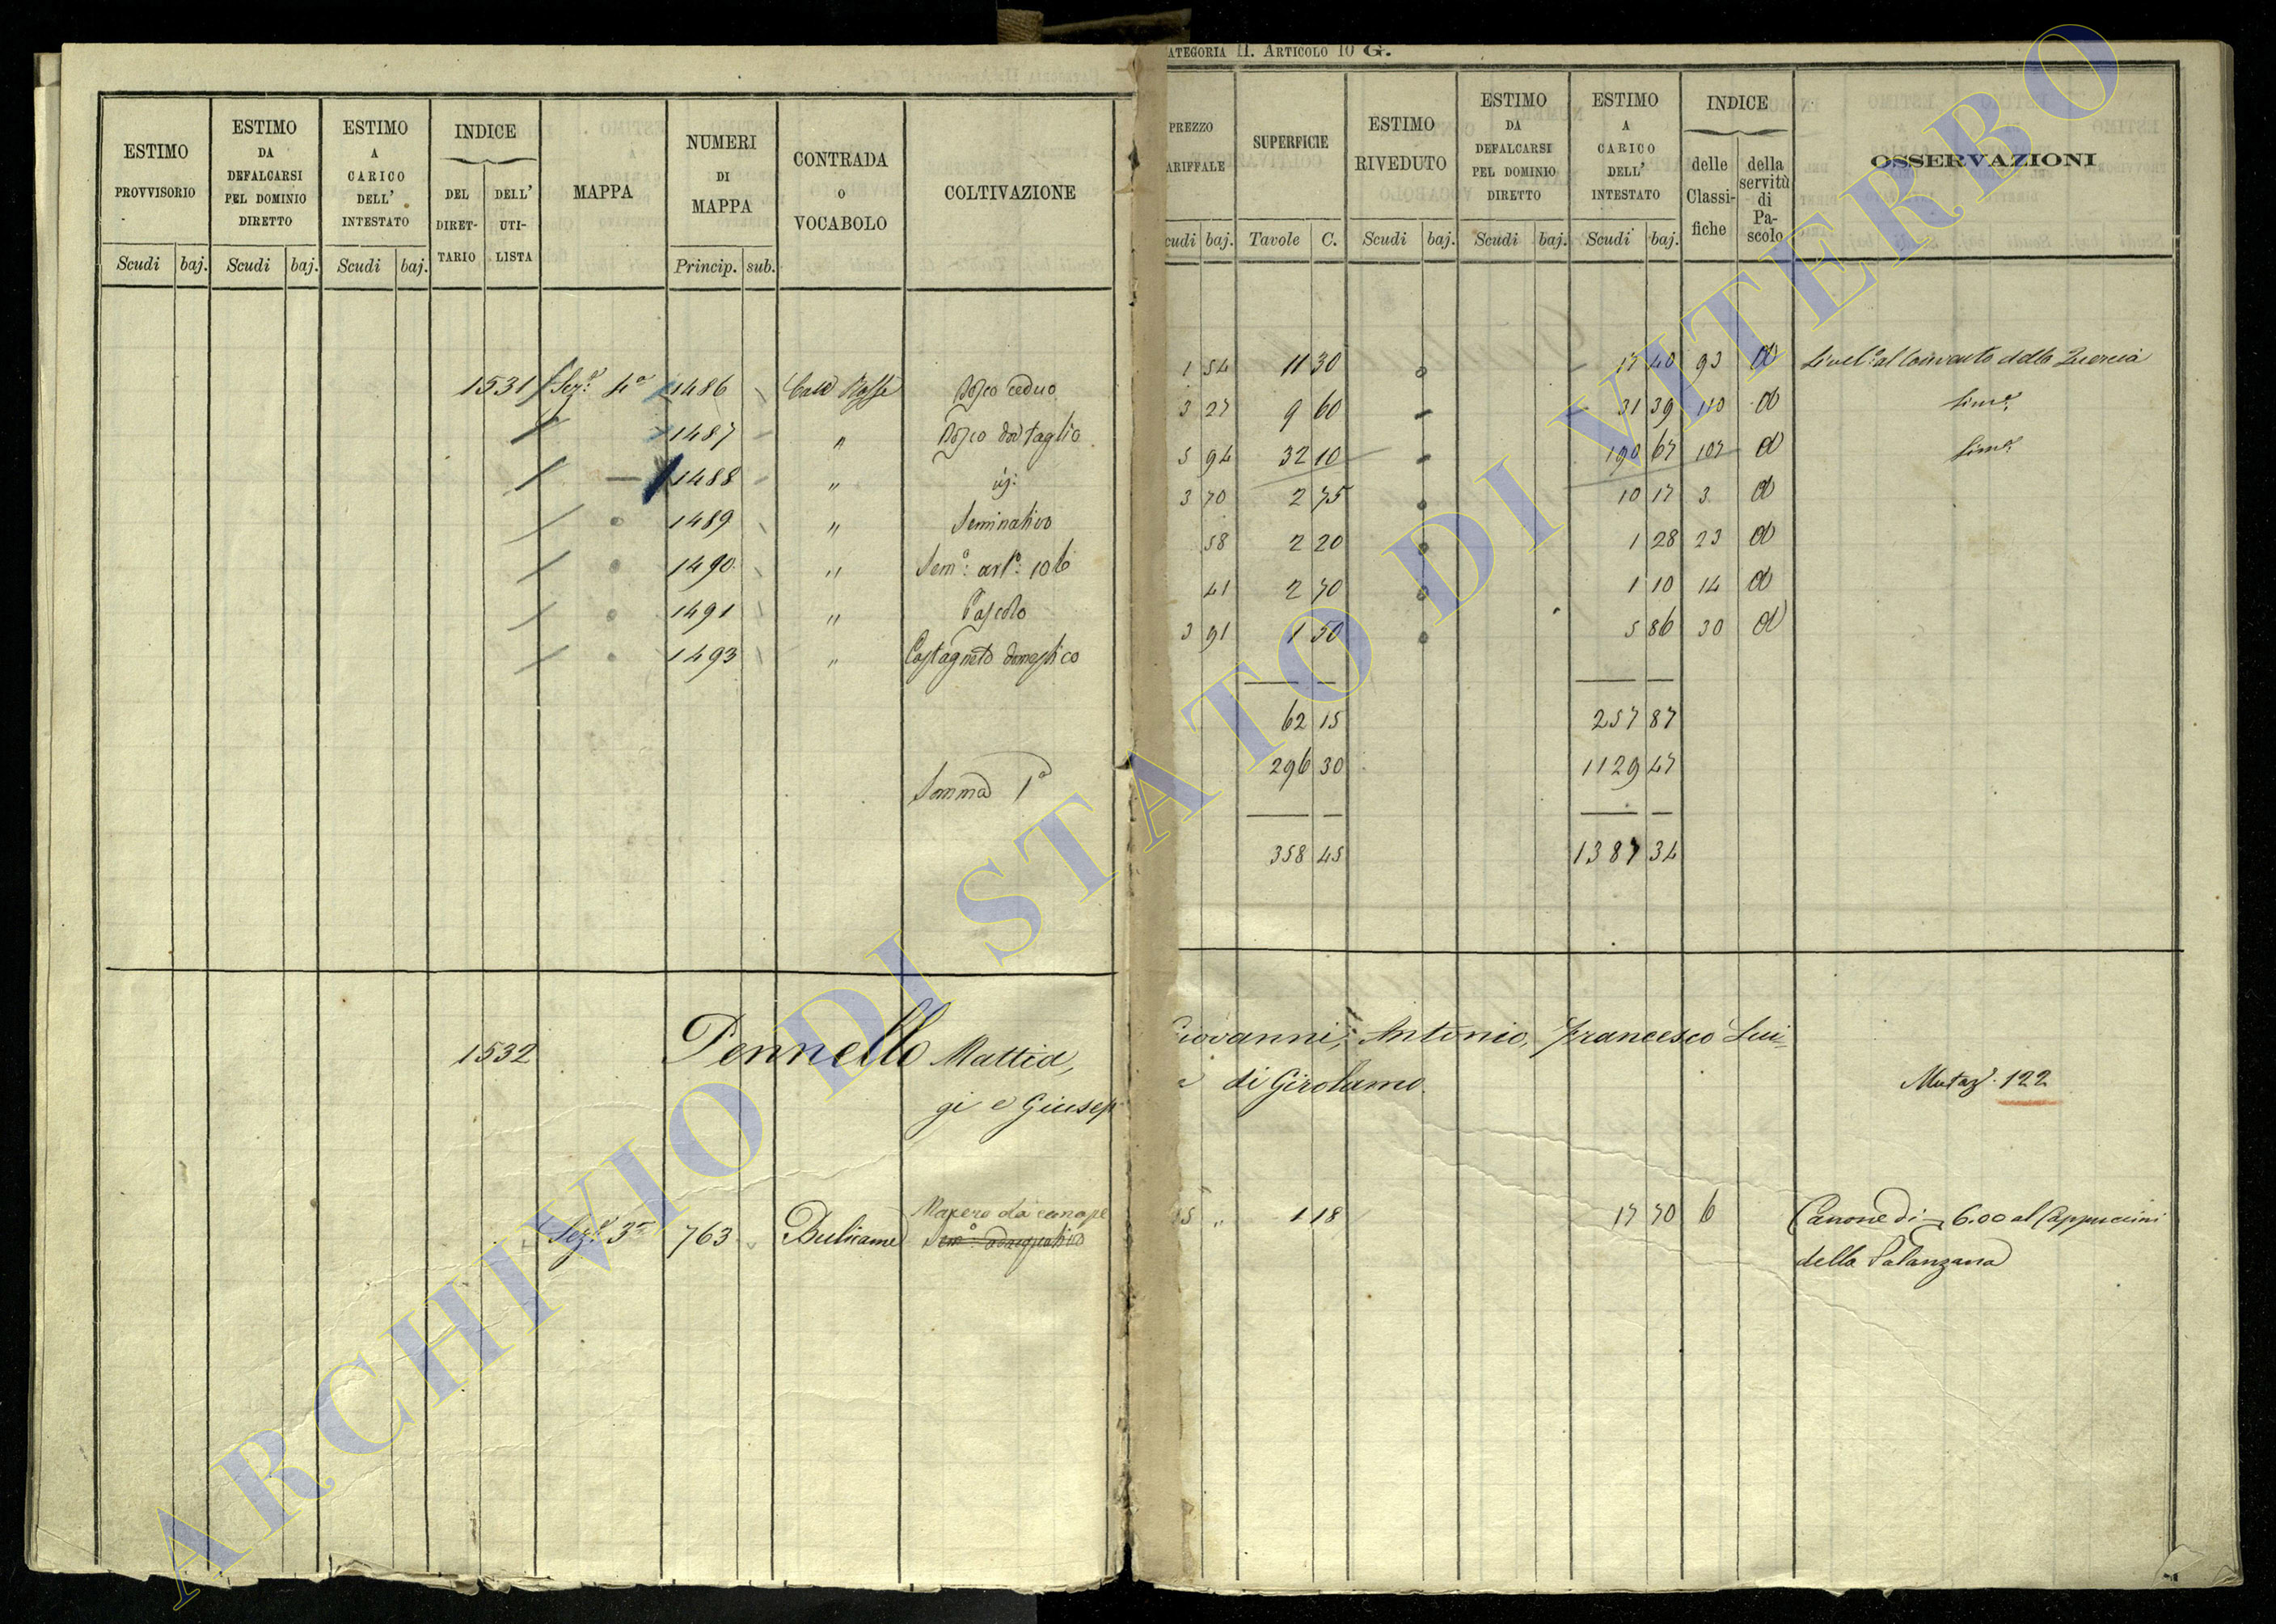 CATEGORIA II. ARTICOLO 10 G.
ESTIMO PROVVISORIO Scudi baj.
ESTIMO DA DEFALCARSI PEL DOMINIO DIRETTO Scudi baj.
ESTIMO A CARICO DELL' INTESTATO Scudi baj.
INDICE DEL DIRET-TARIO DELL' UTI-LISTA
MAPPA
NUMERI DI MAPPA Princip. sub.
CONTRADA O VOCABOLO
COLTIVAZIONE
PREZZO TARIFFALE Scudi baj.
SUPERFICIE Tavole C.
ESTIMO RIVEDUTO Scudi baj.
ESTIMO DA DEFALCARSI PEL DOMINIO DIRETTO Scudi baj.
ESTIMO A CARICO DELL' INTESTATO Scudi baj.
INDICE delle Classi-fiche della servitù di Pa-scolo
OSSERVAZIONI
1531 Sez.e 4a 1486 Case Rosse Bosco ceduo 1 54 11 30 17 40 93 Livel.o al Convento della Quercia
1487 " Bosco da taglio 3 27 9 60 31 39 110 Sim.e
1488 " 5 94 32 10 190 67 107 Sim.e
1489 " Seminativo 3 70 2 75 10 17 3
1490 " Sem.o art.o 106 58 2 20 1 28 23
1491 " Pascolo 41 2 70 1 10 14
1493 " Castagneto domestico 3 91 1 50 5 86 30
62 15 257 87
Somma 1a 296 30 1129 47
358 45 1387 34
1532 Pennello Mattia, Giovanni, Antonio, Francesco Lui-
gi e Giuseppe di Girolamo. Mutaz.e 122
Macero da canape
Sez.e 3a 763 Bulicame 15 " 1 18 17 70 6 Canone di 6.00 al Cappuccini
della Palanzana
ARCHIVIO DI STATO DI VITERBO